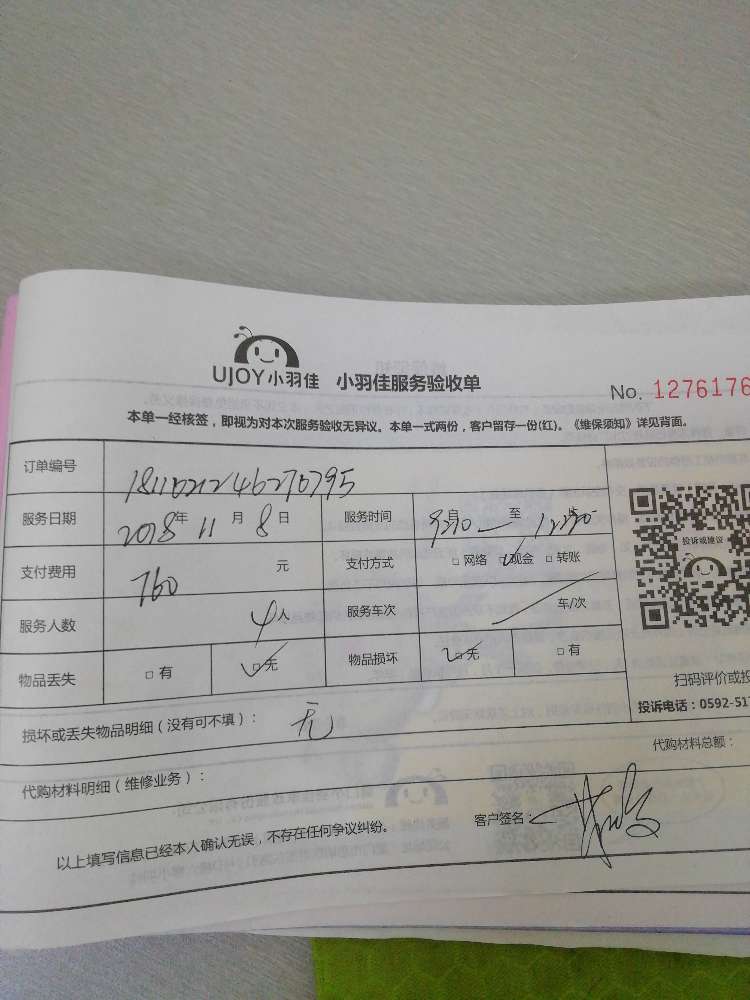 UJOY小羽佳 小羽佳服务验收单
No. 1276176
本单一经核签，即视为对本次服务验收无异议。本单一式两份，客户留存一份(红)。《维保须知》详见背面。
订单编号
服务日期 2018年 11月 8日 服务时间 自 至
支付费用 760 元 支付方式 □ 网络 □现金 □ 转账
服务人数 4人 服务车次 车/次
物品丢失 □ 有 □无 物品损坏 □无 □ 有
投诉或建议
扫码评价或投
投诉电话：0592-517
损坏或丢失物品明细（没有可不填）： 无
代购材料总额：
代购材料明细（维修业务）：
以上填写信息已经本人确认无误，不存在任何争议纠纷。 客户签名：